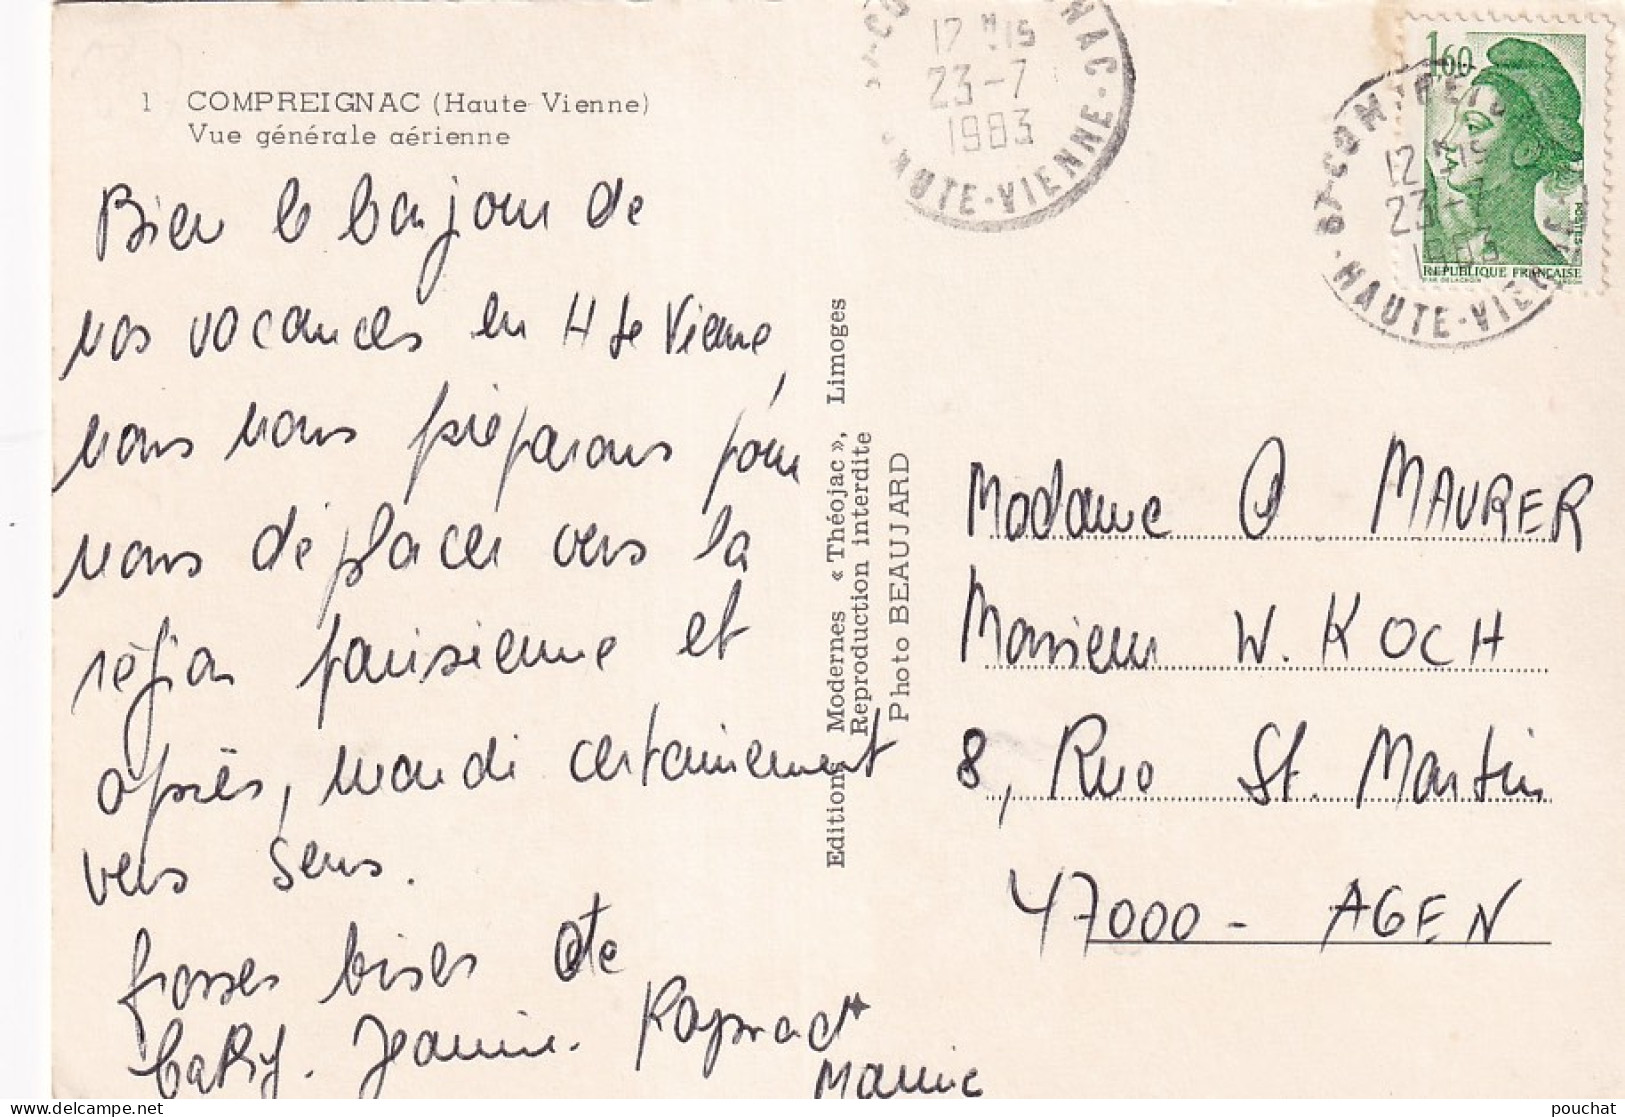 1 COMPREIGNAC (Haute Vienne)
Vue générale aérienne
Bien le bonjour de
nos vacances en Hte Vienne,
nous nous préparons pour
nous déplacer vers la
région parisienne et
après, mardi certainement
vers Sens.
Grosses bises de
Jeannine. Raymond
Marie
Editions Modernes « Théojac », Limoges
Reproduction interdite
Photo BEAUJARD
12 H 15
23-7
1983
HAUTE-VIENNE
1,60
LA
POSTES
REPUBLIQUE FRANÇAISE
87 COMPREIGNAC
12 H 15
23-7
1983
HAUTE-VIENNE
Madame O MAURER
Monsieur W. KOCH
8, Rue St. Martin
47000 - AGEN
pouchat